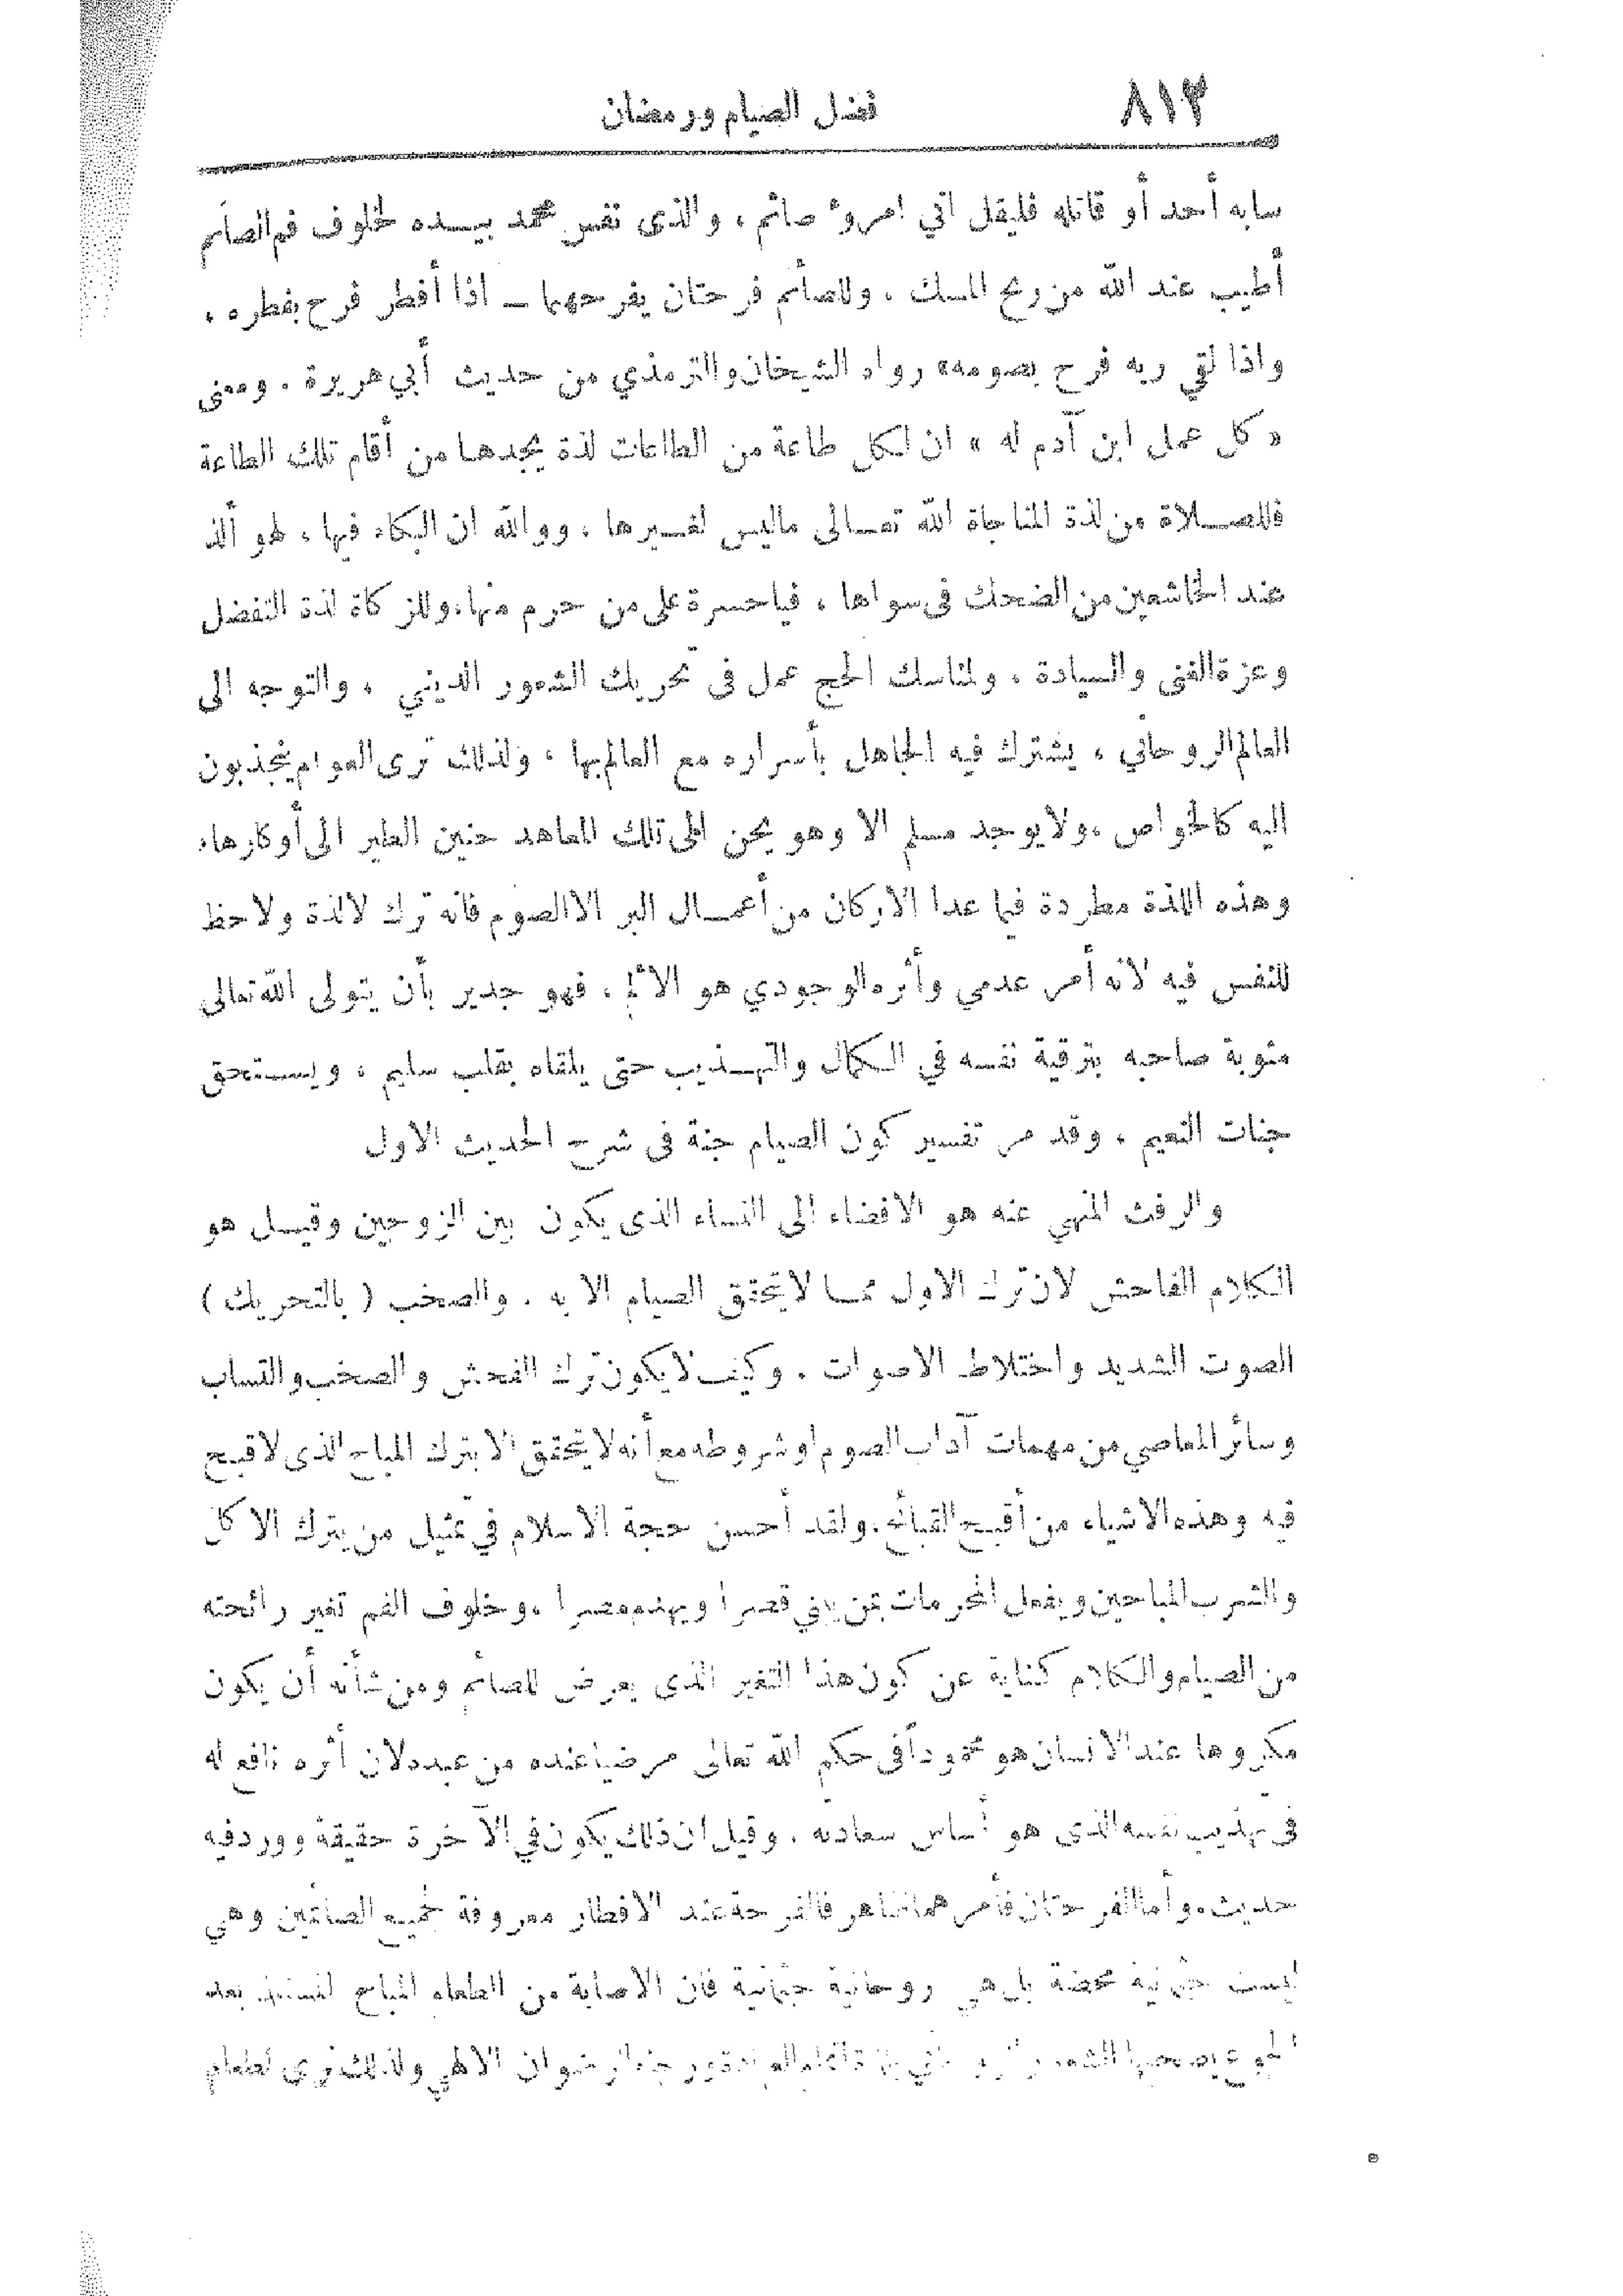 ٨١٣
فضل الصيام ورمضان
سابه أحد أو قاتله فليقل اني امروء صائم ، والذى نفس محمد بيده لخلوف فم الصائم
أطيب عند الله من ريح المسك . وللصائم فرحتان يفرحهما ـ اذا أفطر فرح بفطره ،
واذا لقي ربه فرح بصومه» رواه الشيخان والترمذي من حديث أبي هريرة . ومعنى
« كل عمل ابن آدم له » ان لكل طاعة من الطاعات لذة يجدها من أقام تلك الطاعة
فللصلاة من لذة المناجاة الله تعالى ماليس لغيرها ، ووالله ان البكاء فيها ، لهو ألذ
عند الخاشعين من الضحك فى سواها ، فياحسرة على من حرم منها، وللزكاة لذة التفضل
وعزة الغنى والسيادة ، ولمناسك الحج عمل فى تحريك الشعور الديني ، والتوجه الى
العالم الروحاني ، يشترك فيه الجاهل بأسراره مع العالم بها ، ولذلك ترى العوام ينجذبون
اليه كالخواص ، ولا يوجد مسلم الا وهو يحن الى تلك المعاهد حنين الطير الى أوكارها،
وهذه اللذة مطردة فيما عدا الاركان من أعمال البر الا الصوم فانه ترك لا لذة ولا حظ
للنفس فيه لانه أمر عدمي وأثره الوجودي هو الألم ، فهو جدير بأن يتولى الله تعالى
مثوبة صاحبه بترقية نفسه في الكمال والتهذيب حتى يلقاه بقلب سليم ، ويستحق
جنات النعيم ، وقد مر تفسير كون الصيام جنة فى شرح الحديث الاول
والرفث المنهي عنه هو الافضاء الى النساء الذى يكون بين الزوجين وقيل هو
الكلام الفاحش لان ترك الاول مما لا يتحقق الصيام الا به . والصخب ( بالتحريك )
الصوت الشديد واختلاط الاصوات . وكيف لا يكون ترك الفحش والصخب والتساب
وسائر المعاصي من مهمات آداب الصوم او شروطه مع أنه لا يتحقق الا بترك المباح الذى لا قبح
فيه وهذه الاشياء من أقبح القبائح. ولقد أحسن حجة الاسلام في تمثيل من يترك الاكل
والشرب المباحين ويفعل المحرمات بمن يبني قصرا ويهدم مصرا ، وخلوف الفم تغير رائحته
من الصيام والكلام كناية عن كون هذا التغير الذى يعرض للصائم ومن شأنه أن يكون
مكروها عند الانسان هو محمودا فى حكم الله تعالى مرضيا عنده من عبده لان أثره نافع له
فى تهذيب نفسه الذى هو أساس سعادته . وقيل ان ذلك يكون في الآخرة حقيقة وورد فيه
حديث، وأما الفرحتان فأمرهما ظاهر فالفرحة عند الافطار معروفة لجميع الصائمين وهي
ليست جثمانية محضة بل هي روحانية جثمانية فان الاصابة من الطعام المباح المستلذ بعد
الجوع يصحبها الشعور ورجاء الرضوان الالهي ولذلك نرى لطعام